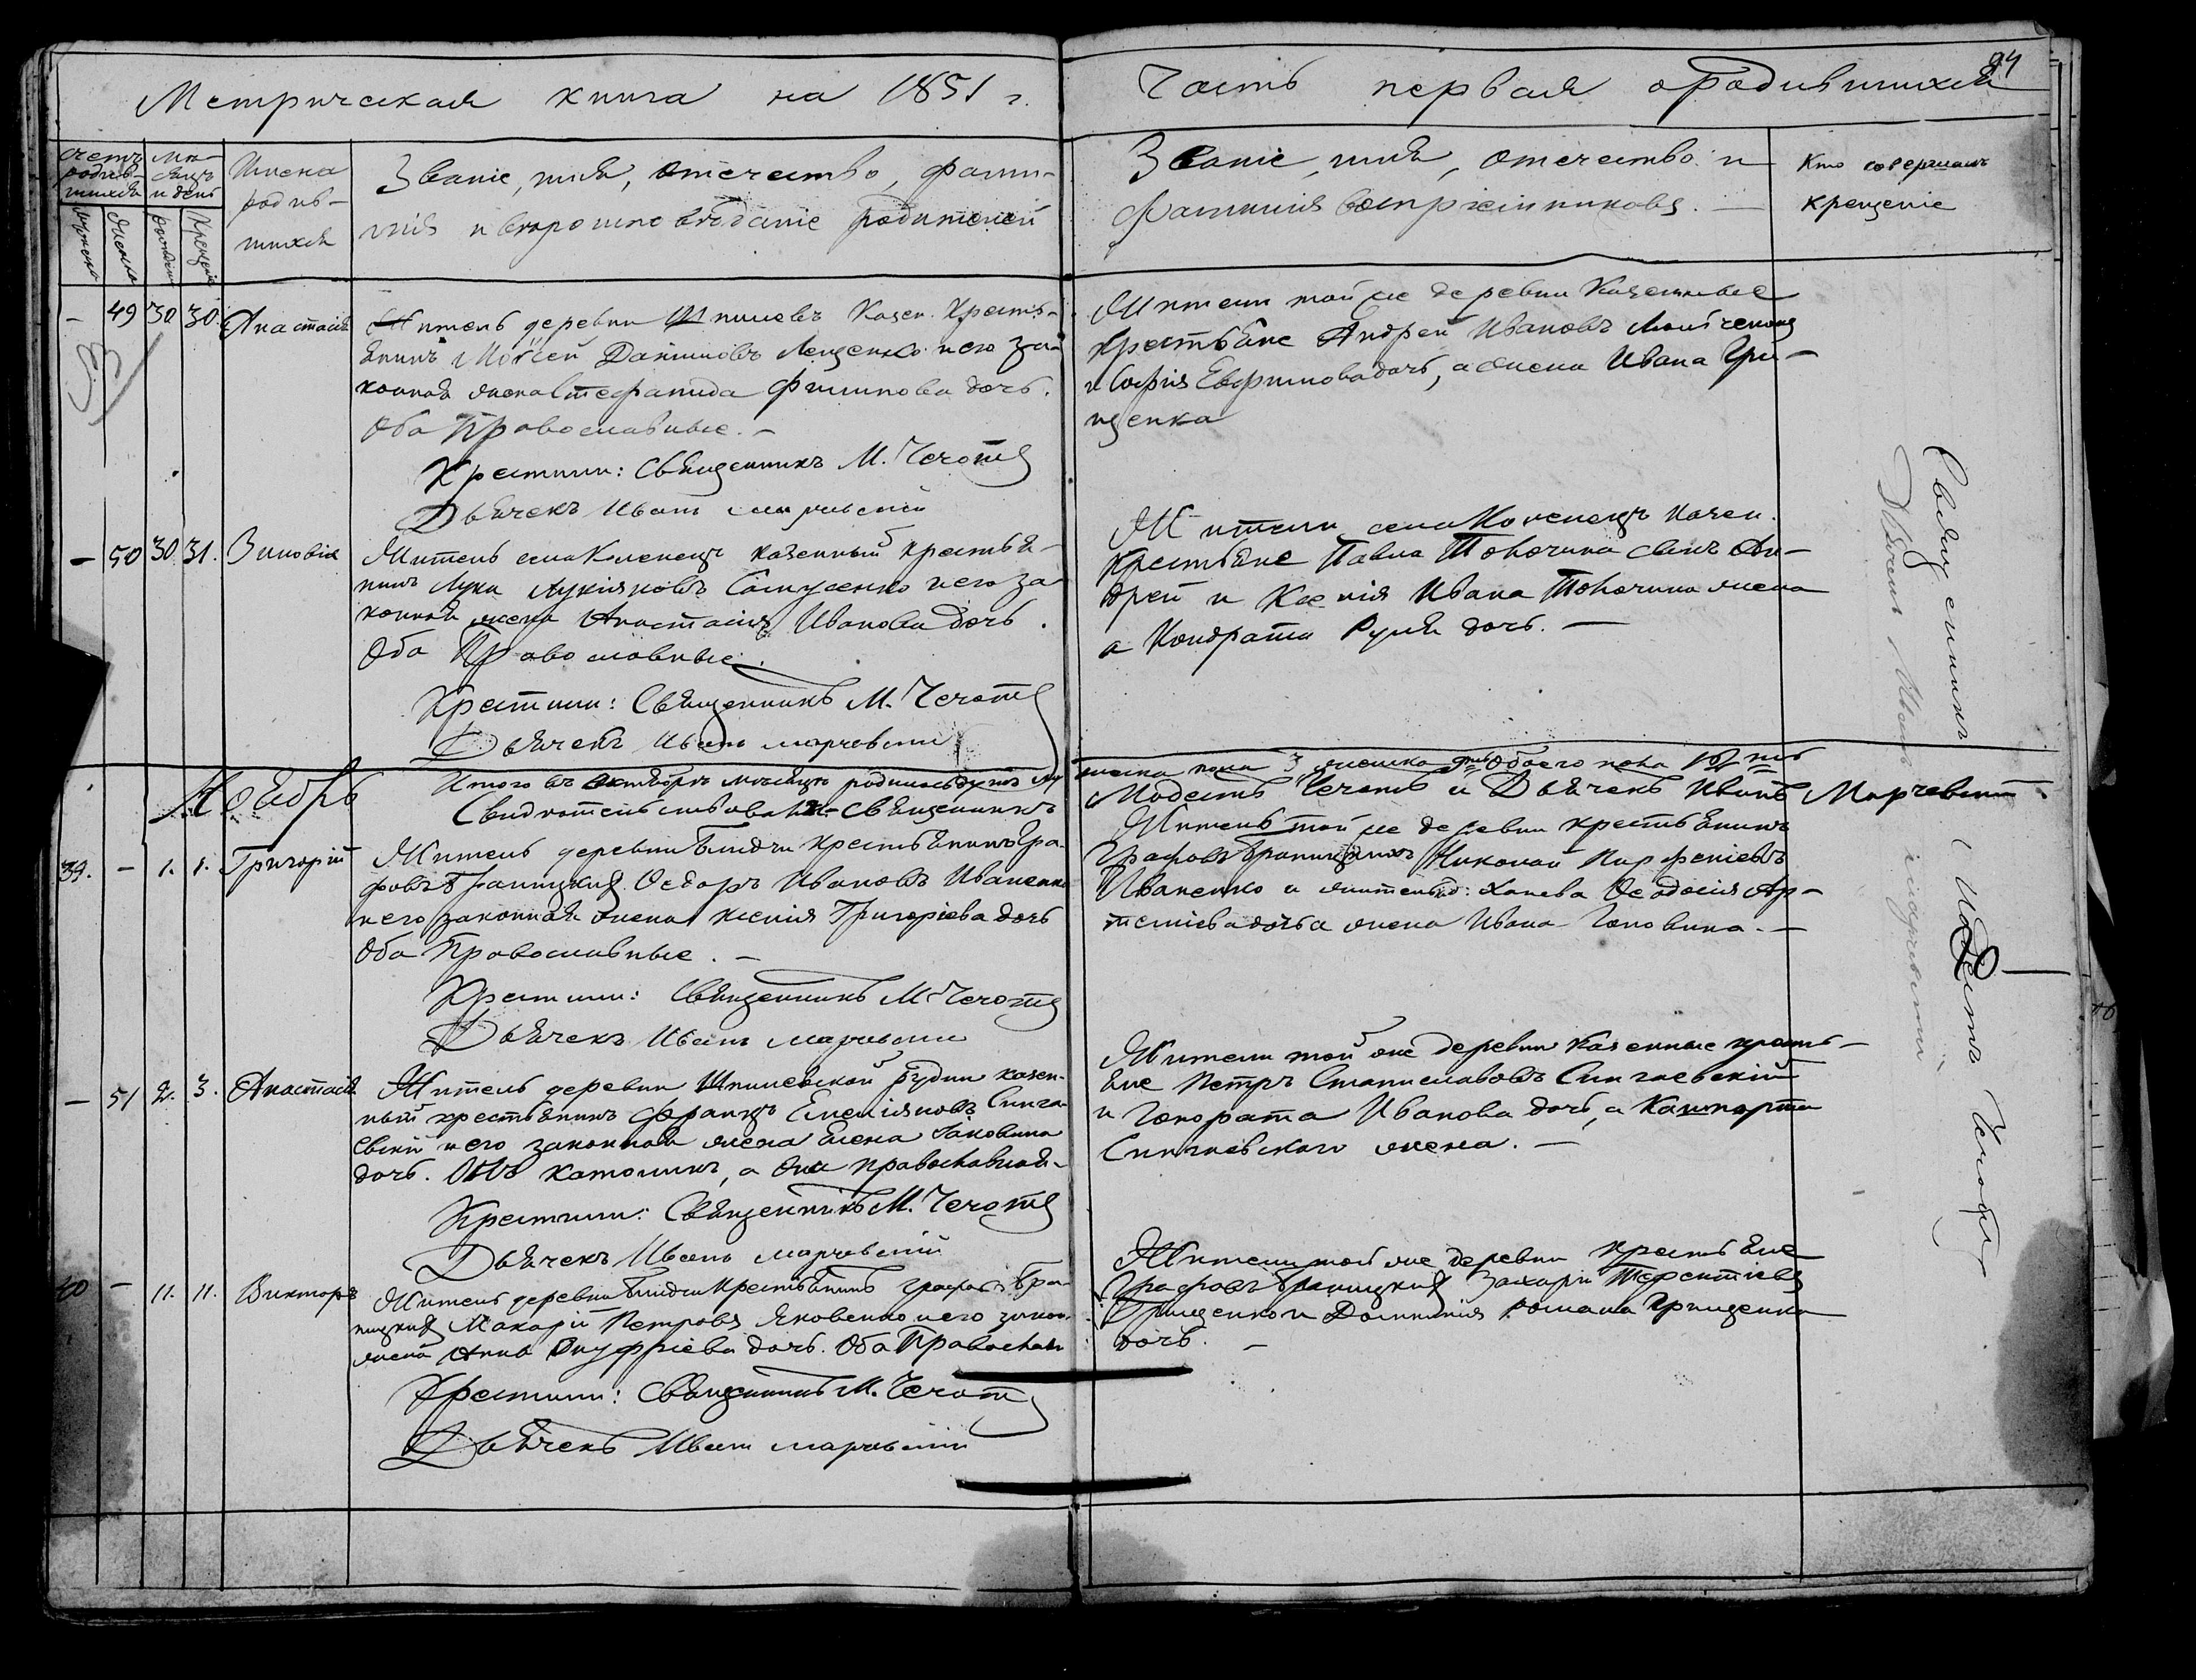 Метрическая книга на 1851 г.
Часть первая о родившихся
84
Счетъ родив-шихся
мѣ-сяцъ и день
Имена родив-шихся
Званіе, имя, отечество, фами-
лія и вѣроисповѣданіе родителей
мужеска
женска
рожденія
крещенія
Званіе, имя, отечество и
фамилія воспріемниковъ.
Кто совершалъ
крещеніе
– 49 30 30 Анастасія
Житель деревни Шпилевъ Казен. Кресть-
янинъ Моѵсей Даниловъ Лещенко и его за-
конная жена Стефанида Филипова дочь.
Оба Православные. –
Крестили: Священникъ М. Чечотъ
Дьячекъ Иванъ Марчевскій
Жители той же деревни Казенные
Крестьяне Андрей Ивановъ
и Софія Евфимова дочь, а жена Ивана Гри-
щенка
– 50 30 31. Зиновія
Житель села Коленецъ казенный крестья-
нинъ Лука Лукіяновъ и его за
конная жена Анастасія Иванова дочь.
Оба Православные.
Крестили: Священникъ М. Чечотъ
Дьячекъ Иванъ Марчевскій
Жители села Коленецъ казен.
Крестьяне Павла Товочина сынъ Ан-
дрей и Ксенія Ивана Товочина жена
а Кондрата дочь. –
Итого въ Октябрѣ мѣсяцѣ родилось душъ му
жеска пола 3 женска 9 обоего пола 12
Ноябрь
Свидѣтельствовали – Священникъ
Модестъ Чечотъ и Дьячекъ Иванъ Марчевскій.
39. – 1. 1. Григорій
Житель деревни крестьянинъ Гра-
фовъ Браницкихъ Ѳедоръ Ивановъ Иваненко
и его законная жена Ксенія Григоріева дочь
Оба Православные. –
Крестили: Священникъ М. Чечотъ
Дьячекъ Иванъ Марчевскій
Житель той же деревни крестьянинъ
Графовъ Браницкихъ Николай Парфеніевъ
Иваненко и жительн. д: Ханева Ѳеодосія Ар-
теміева дочь а жена Ивана Головина. –
– 51 2. 3. Анастасія
Житель деревни Шпилевской рудни казен-
ный крестьянинъ Францъ Емеліяновъ Синга-
евскій и его законная жена Елена Яковлева
дочь. Онъ католикъ, а она православная.
Крестили: Священникъ М. Чечотъ
Дьячекъ Иванъ Марчевскій
Жители той же деревни Казенные кресть-
яне Петръ Станиславовъ Сингаевскій
и Гонората Иванова дочь, а Каспарта
Сингаевскаго жена. –
40 – 11. 11. Викторъ
Житель деревни Крестьянинъ графовъ Бра-
ницкихъ Макарій Петровъ Яковенко и его закон.
жена Анна Онуфріева дочь. Оба Православн
Крестили: Священникъ М. Чечотъ
Дьячекъ Иванъ Марчевскій
Жители той же деревни Крестьяне
Графовъ Браницкихъ Захарій Терентіевъ
Грищенко и Домникія Романа Грищенка
дочь. –
Священникъ Модестъ Чечотъ
Дьячекъ Иванъ Марчевскій